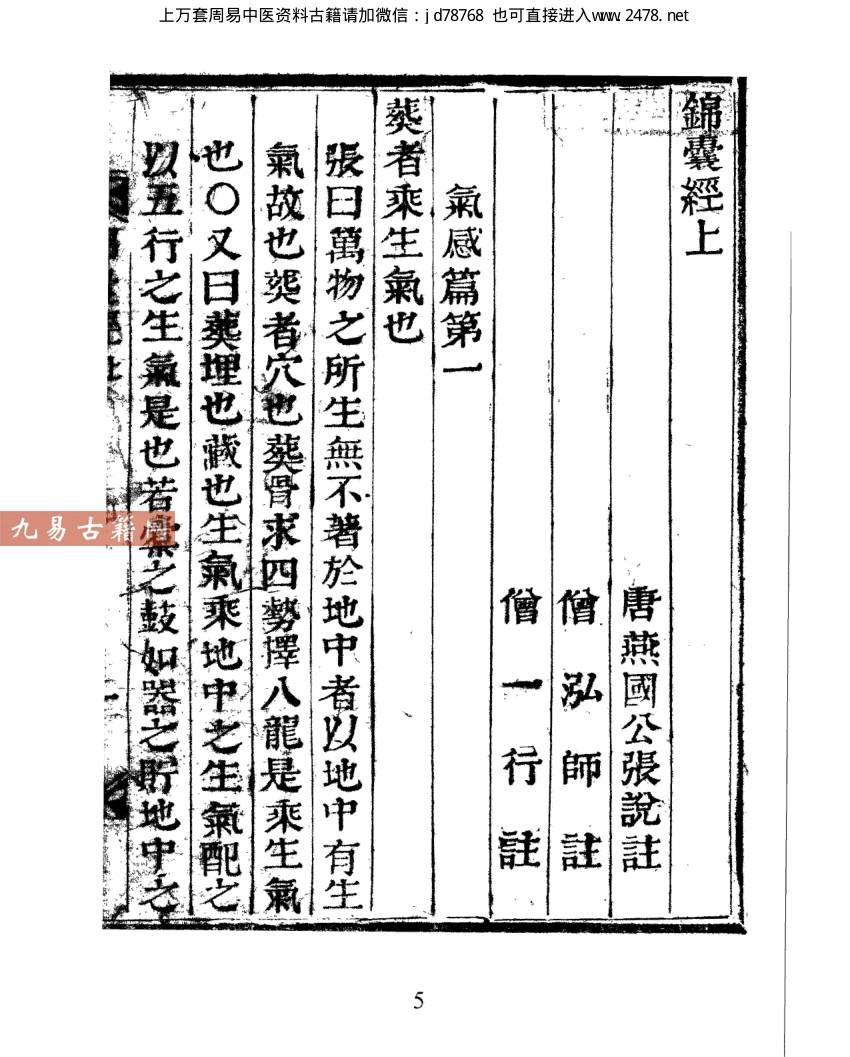 上万套周易中医资料古籍请加微信：jd78768 也可直接进入www.2478.net
錦囊經上
唐燕國公張說註
僧泓師註
僧一行註
氣感篇第一
葬者乘生氣也
張曰萬物之所生無不著於地中者以地中有生
氣故也葬者穴也葬骨求四勢擇八龍是乘生氣
也○又曰葬埋也藏也生氣乘地中之生氣配之
以五行之生氣是也若橐之鼓如器之貯地中之
九易古籍網
5